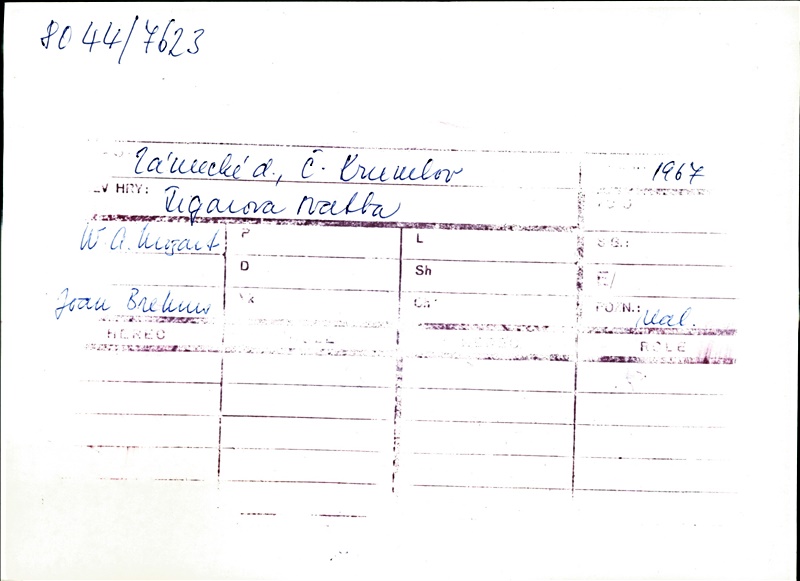 8044/7623
Zámecké d., Č. Krumlov 1967
EV HRY: Figarova svatba
W. A. Mozart P L
D Sh
Joan Brehms
POZN.: kal.
HEREC ROLE